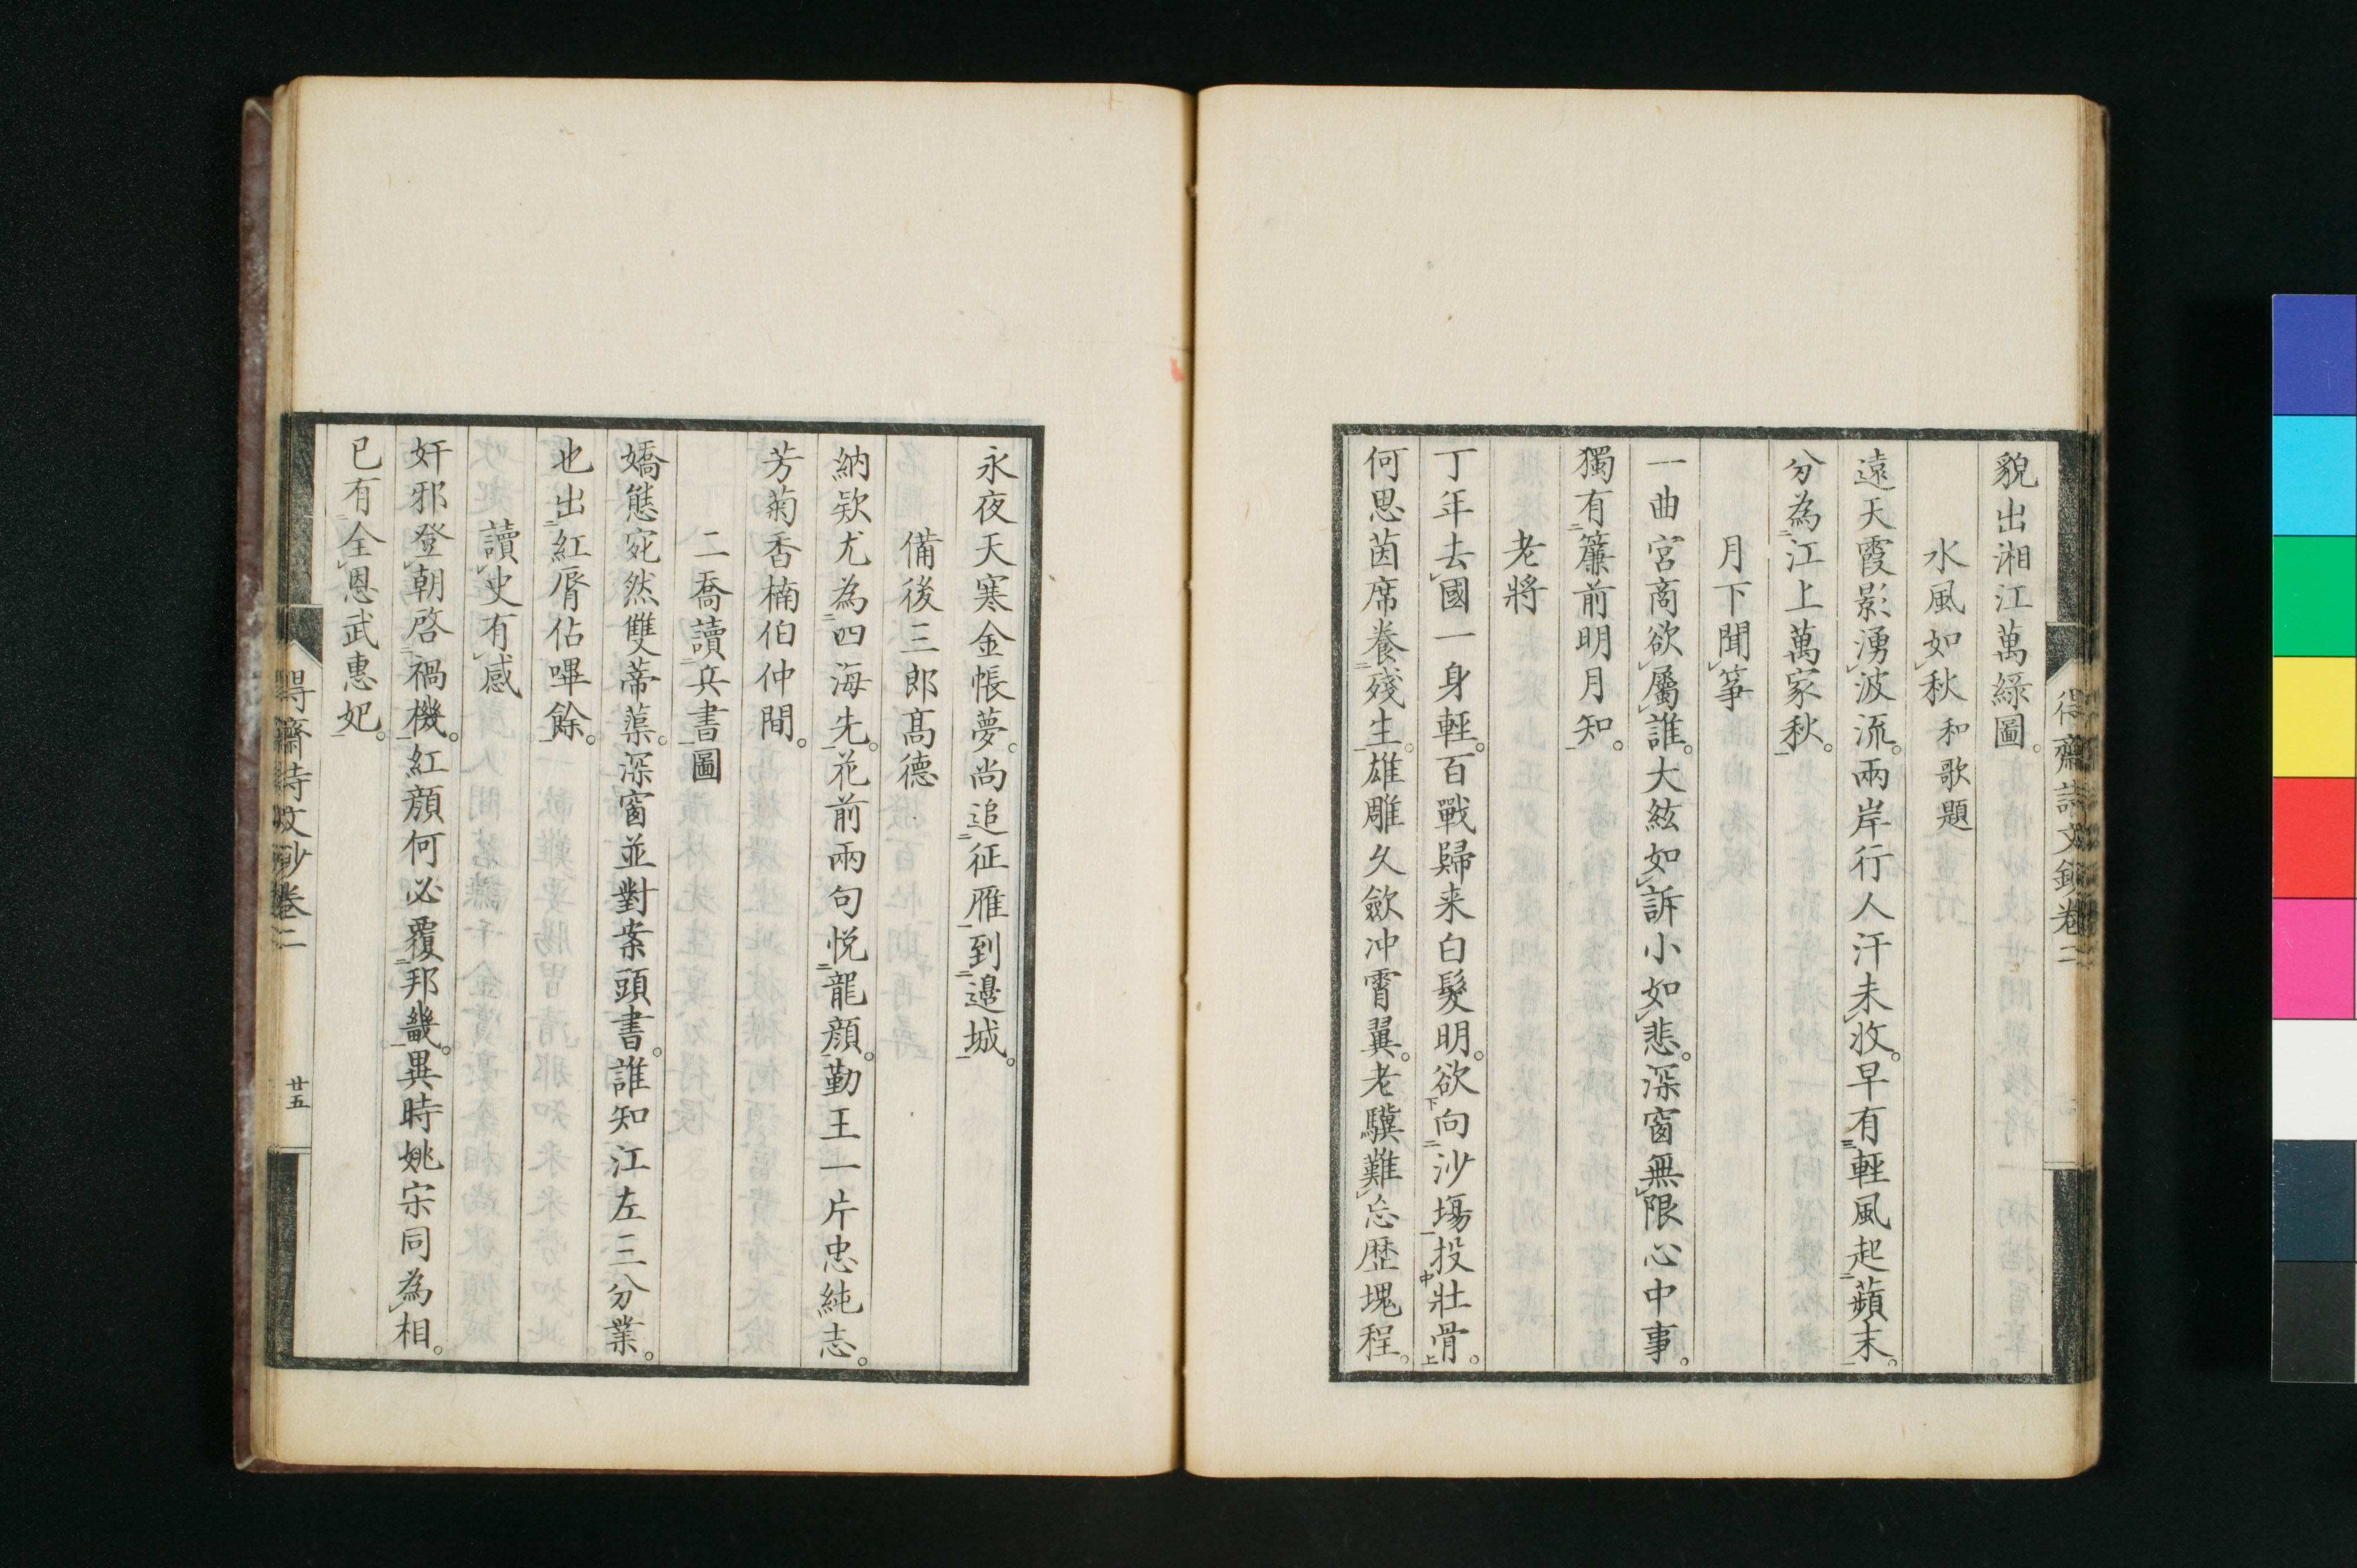 貌出湘江萬綠圖。
水風如秋 和歌題
遠天霞影湧波流。兩岸行人汗未收。早有輕風起蘋末。
分為江上萬家秋。
月下聞箏
一曲宮商欲屬誰。大絃如訴小如悲。深窗無限心中事。
獨有簾前明月知。
老將
丁年去國一身輕。百戰歸来白髮明。欲向沙塲投壯骨。
何思茵席養殘生。雄雕久斂冲霄翼。老驥難忘歴塊程。
得齋詩文鈔卷二
永夜天寒金帳夢。尚追征雁到邊城。
備後三郎髙德
納欵尤為四海先。花前兩句悦龍顔。勤王一片忠純志。
芳菊香楠伯仲間。
二喬讀兵書圖
嬌態宛然雙蒂蕖。深窗並對案頭書。誰知江左三分業。
也出紅脣佔嗶餘。
讀史有感
奸邪登朝啓禍機。紅顔何必覆邦畿。異時姚宋同為相。
已有全恩武惠妃。
得齋詩文鈔卷二
廿五